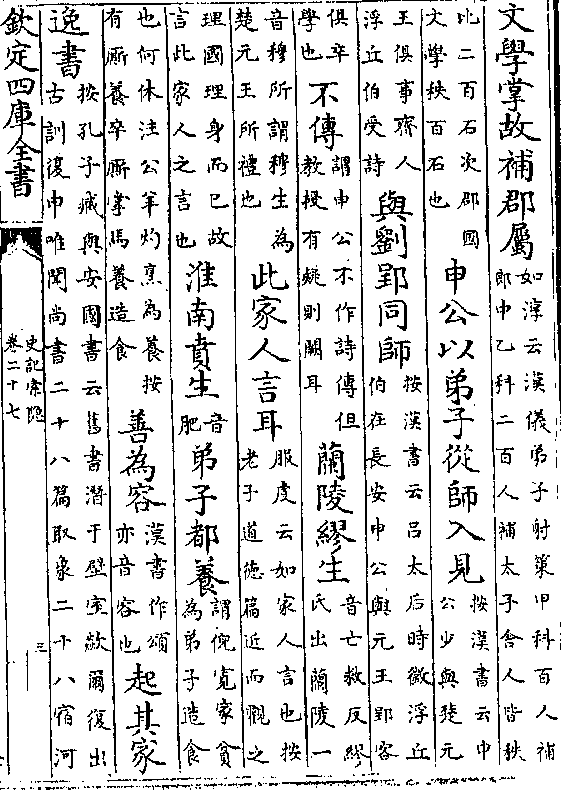 文學掌故補郡屬如淳云漢儀弟子射策甲科百人補郎中乙科二百人補太子舍人皆秩
比二百石次郡國文學秩百石也申公以弟子從師入見按漢書云申公少與楚元
王俱事齊人浮丘伯受詩與劉郢同師按漢書云呂太后時徵浮丘伯在長安申公與元王郢客
俱卒學也不傳謂申公不作詩傳但教授有疑則闕耳蘭陵繆生音亡救反繆氏出蘭陵一
音穆所謂穆生為楚元王所禮也此家人言耳服虔云如家人言也按老子道德篇近而觀之
理國理身而已故言此家人之言也淮南賁生音肥弟子都養謂倪寬家貧為弟子造食
也何休注公羊灼烹為養按有厮養卒厮掌馬養造食善為容漢書作頌亦音容也起其家
逸書按孔子臧與安國書云舊書潛于壁室歘爾復出古訓復申唯聞尚書二十八篇取象二十八宿河
欽定四庫全書
史記索隱
卷二十七
三